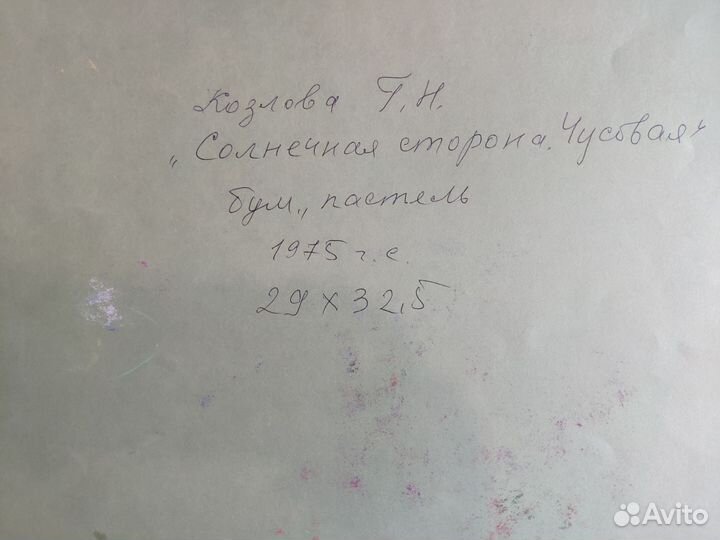 Козлова Т.Н.
„Солнечная сторона. Чусовая“
бум., пастель
1975 г. с.
29 х 32,5
Avito